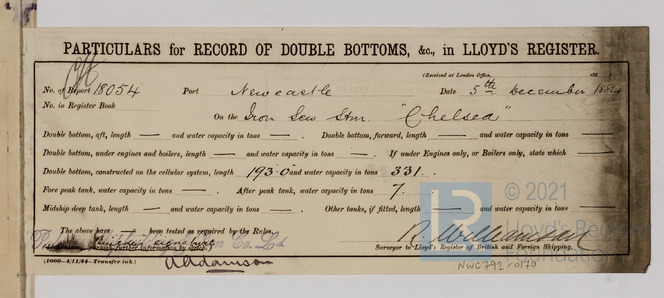 PARTICULARS for RECORD OF DOUBLE BOTTOMS, &c., in LLOYD'S REGISTER.
(Received at London Office, 188 )
No. of Report 18054 Port Newcastle Date 5th December 1884
No. in Register Book On the Iron Sew Stm. "Chelsea"
Double bottom, aft, length — and water capacity in tons — . Double bottom, forward, length — and water capacity in tons —
Double bottom, under engines and boilers, length — and water capacity in tons — . If under Engines only, or Boilers only, state which —
Double bottom, constructed on the cellular system, length 193.0 and water capacity in tons 331.
Fore peak tank, water capacity in tons — . After peak tank, water capacity in tons 7.
Midship deep tank, length — and water capacity in tons — . Other tanks, if fitted, length — and water capacity in tons —
The above have — been tested as required by the Rules.
Builder's signature Co. Ld
R. Williamson
Surveyor to Lloyd's Register of British and Foreign Shipping.
(1000—4/11/84—Transfer ink.)
NWC792-0170
© 2021
Lloyd's Register
Foundation